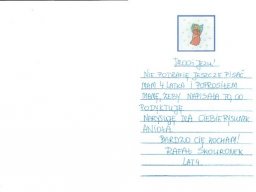 Drogi Jezu!
NIE POTRAFIĘ JESZCZE PISAĆ
MAM 4 LATKA I POPROSIŁEM
ŻEBY NAPISAŁA TO, CO
PODYKTUJĘ.
NARYSUJĘ DLA CIEBIE RYSUNEK
ANIOŁA.
BARDZO CIĘ KOCHAM!
RAFAŁ SKOWRONEK
LAT 4.